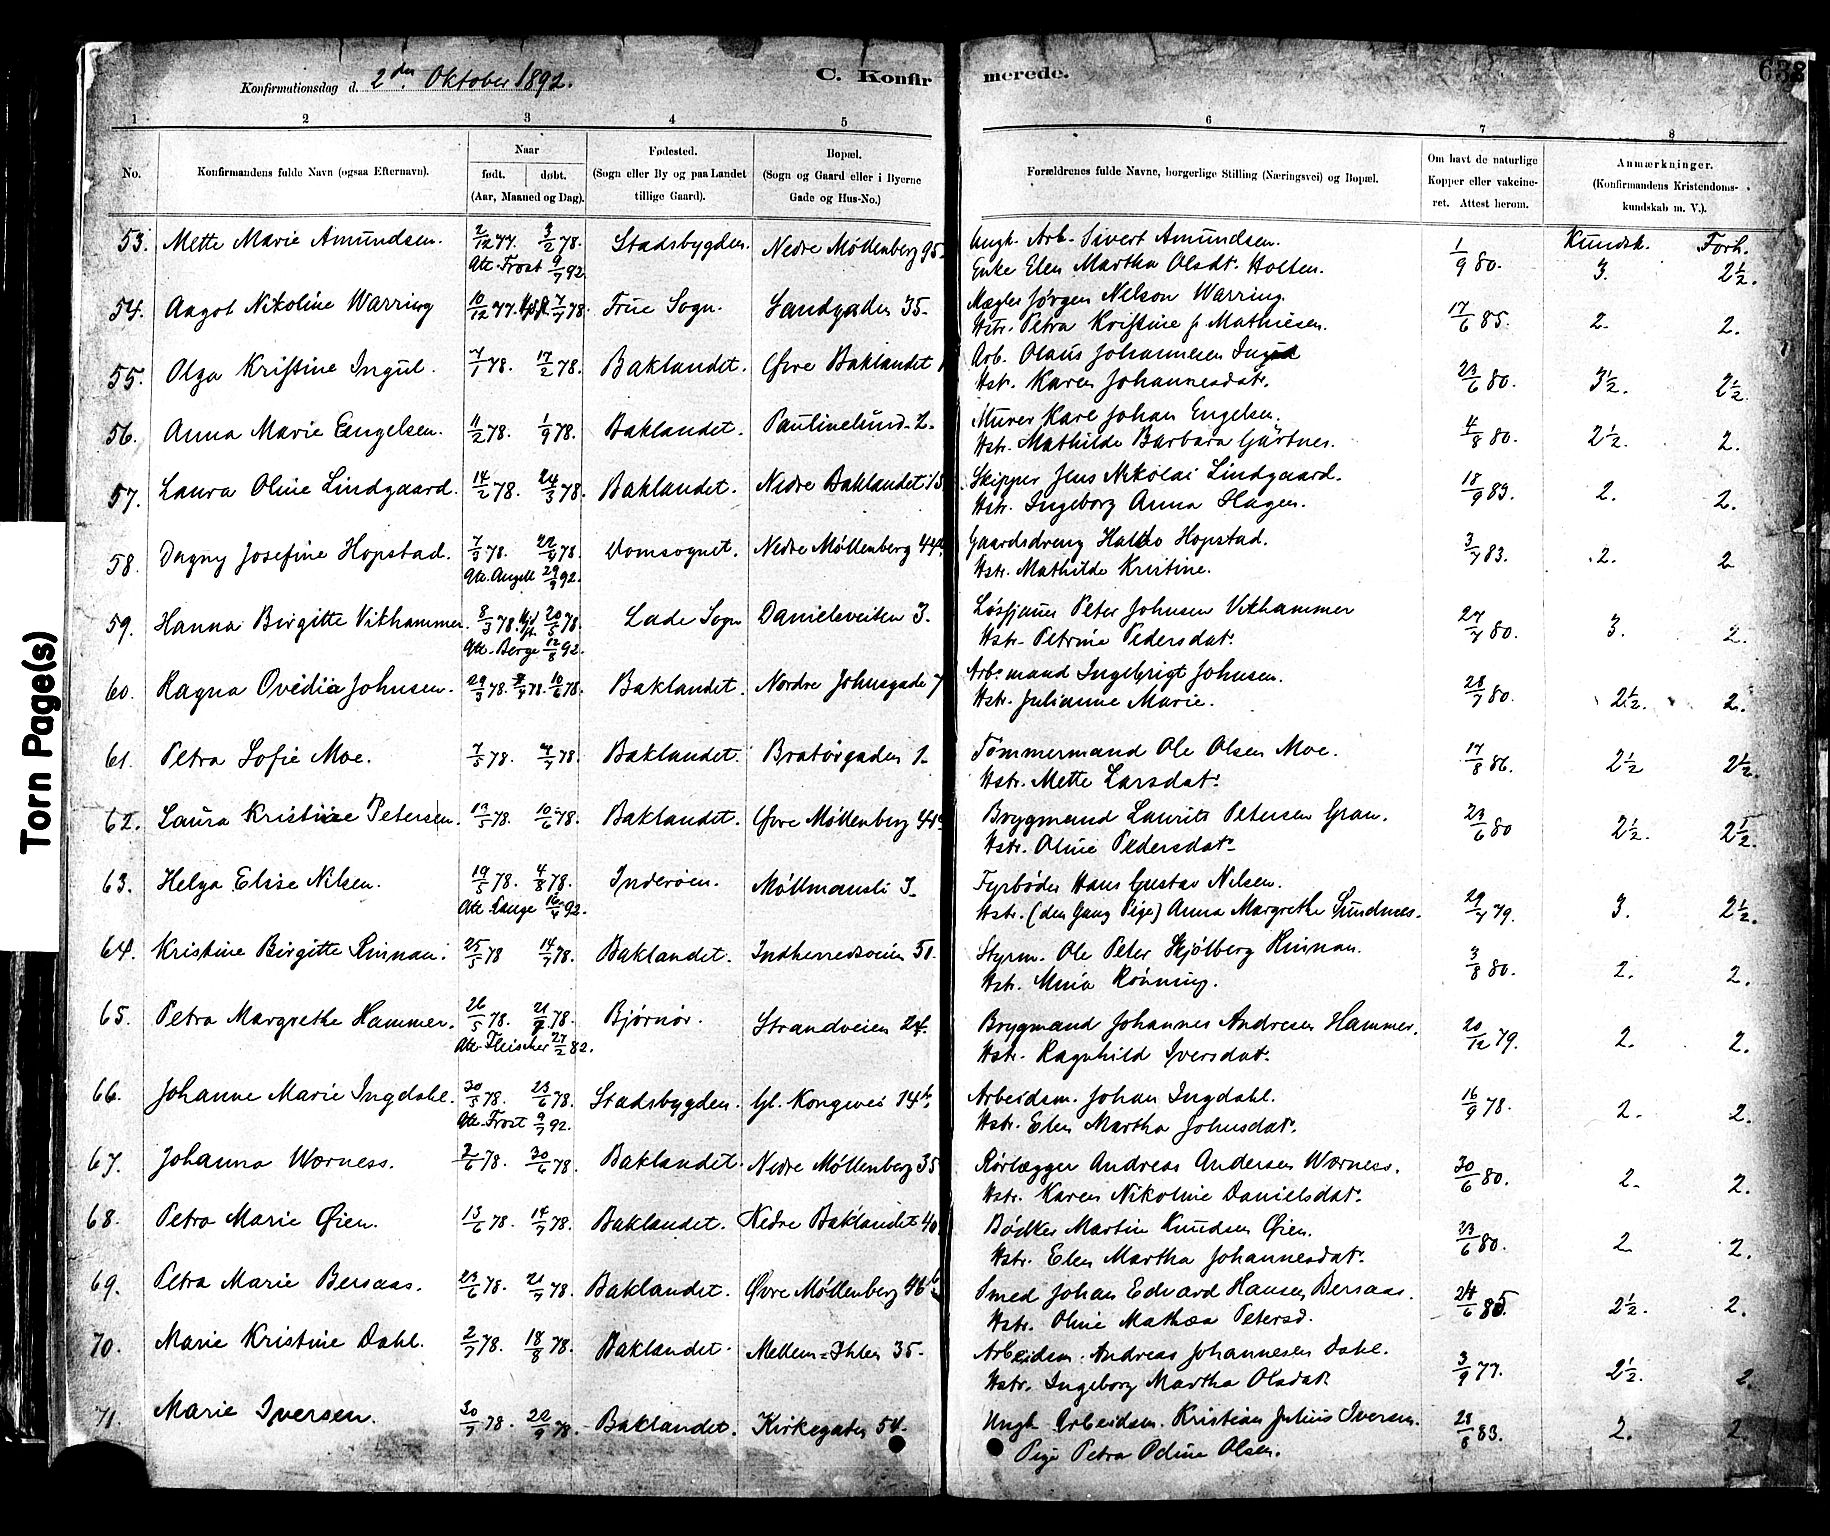 Torn Page(s)
Konfirmationsdag d. 2den Oktober 1892.
C. Konfirmerede.
1 2 3 4 5 6 7 8
No. Konfirmandens fulde Navn (ogsaa Efternavn). Naar født. døbt. (Aar, Maaned og Dag). Fødested. (Sogn eller By og paa Landet tillige Gaard). Bopæl. (Sogn og Gaard eller i Byerne Gade og Hus-No.) Forældrenes fulde Navne, borgerlige Stilling (Næringsvei) og Bopæl. Om havt de naturlige Kopper eller vakcineret. Attest herom. Anmærkninger. (Konfirmandens Kristendomskundskab m. V.).
Kundsk. Forh.
53. Mette Marie Amundsen. 2/12 77. 3/2 78. Stadsbygden. Nedre Møllenberg 95. Ungk. Arb. Sivert Amundsen. 1/9 80. 3. 2½.
Att. Frost 9/7 92. Enke Elen Martha Olsdt. Holten.
54. Aagot Nikoline Warring 10/12 77. 7/7 78. Frue Sogn. Sandgaden 35. Mægler Jørgen Nelson Warring. 17/6 85. 2. 2.
Hstr. Petra Kristine f. Mathiesen.
55. Olga Kristine Ingul. 7/1 78. 17/2 78. Baklandet. Øvre Baklandet 1 Arb. Olaus Johannesen Ingul 23/6 80. 3½. 2½.
Hstr. Karen Johannesdatr.
56. Anna Marie Engelsen. 11/2 78. 1/9 78. Baklandet. Paulinelund 2. Murer Karl Johan Engelsen. 4/8 80. 2½. 2.
Hstr. Mathilde Barbara Gärtner.
57. Laura Oline Lindgaard. 14/2 78. 24/3 78. Baklandet. Nedre Baklandet Skipper Jens Nikolai Lindgaard. 18/9 83. 2. 2.
Hstr. Ingeborg Anna Hagen.
58. Dagny Josefine Hopstad. 7/3 78. 22/6 78. Domsognet. Nedre Møllenberg 44 Gaardsdreng Haldo Hopstad. 3/7 83. 2. 2
Att. Angell 29/9 92. Hstr. Mathilde Kristine.
59. Hanna Birgitte Vikhammer. 8/3 78. 20/5 78. Lade Sogn Danielsveiten 3. Løsgjænger Peter Johnsen Vikhammer 27/7 80. 3. 2.
Att. Berge 12/8 92. Hstr. Petrine Pedersdatr.
60. Ragna Ovidia Johnsen. 29/3 78. 10/6 78. Baklandet. Nordre Johnsgade 7 Arb.mand Ingebrigt Johnsen. 28/7 80. 2½. 2.
Hstr. Julianne Marie.
61. Petra Sofie Moe. 7/5 78. 4/7 78. Baklandet. Bratørgaden 1. Tømmermand Ole Olsen Moe. 17/8 86. 2½ 2½.
Hstr. Mette Larsdatr.
62. Laura Kristine Petersen. 19/5 78. 10/6 78. Baklandet. Øvre Møllenberg 44 Brygmand Laurits Petersen Gran. 23/6 80 2½. 2½.
Hstr. Oline Pedersdatr.
63. Helga Elise Nilsen. 19/5 78. 4/8 78. Inderøen. Møllmansli 3. Fyrbøder Hans Gustav Nilsen. 29/7 79. 3. 2½.
Att. Lange 16/4 92. Hstr. (den Gang Pige) Anna Margrethe Sundnes.
64. Kristine Birgitte Rinnan. 25/5 78 14/7 78. Baklandet. Indherredsveien 50. Styrm. Ole Peter Skjølberg Rinnan. 3/8 80. 2. 2.
Hstr. Mina Rønning.
65. Petra Margrethe Hammer. 26/5 78. 21/7 78. Bjørnør. Strandveien 24. Brygmand Johannes Andresen Hammer. 20/12 79. 2. 2.
Att. Fleischer 27/2 82. Hstr. Ragnhild Iversdatr.
66. Johanne Marie Ingdahl. 30/5 78. 23/6 78. Stadsbygden. Gl. Kongevei 14b. Arbeidsm. Johan Ingdahl. 16/9 78. 2. 2.
Att. Frost 9/7 92. Hstr. Elen Martha Johnsdatr.
67. Johanna Wærness. 2/6 78. 30/6 78. Baklandet. Nedre Møllenberg 35 Rørlægger Andreas Andersen Wærness. 30/6 80. 2. 2.
Hstr. Karen Nikoline Danielsdatr.
68. Petra Marie Øien. 13/6 78. 14/7 78. Baklandet. Nedre Baklandet 40 Bødker Martin Knudsen Øien. 23/6 80. 2 2.
Hstr. Elen Martha Johannesdatr.
69. Petra Marie Bersaas. 23/6 78. 21/7 78. Baklandet. Øvre Møllenberg 46b Smed Johan Edvard Hansen Bersaas. 24/6 85. 2½. 2.
Hstr. Oline Mathea Petersd.
70. Marie Kristine Dahl. 2/7 78. 18/8 78. Baklandet. Mellem-Ihlen 35. Arbeidsm. Andreas Johannesen Dahl. 3/9 77. 2½. 2.
Hstr. Ingeborg Martha Olsdatr.
71. Marie Iversen. 30/7 78. 22/9 78. Baklandet. Kirkegaten 54. Ungk. Arbeidsm. Kristian Julius Iversen. 23/8 83. 2. 2.
Pige Petra Odine Olsen.